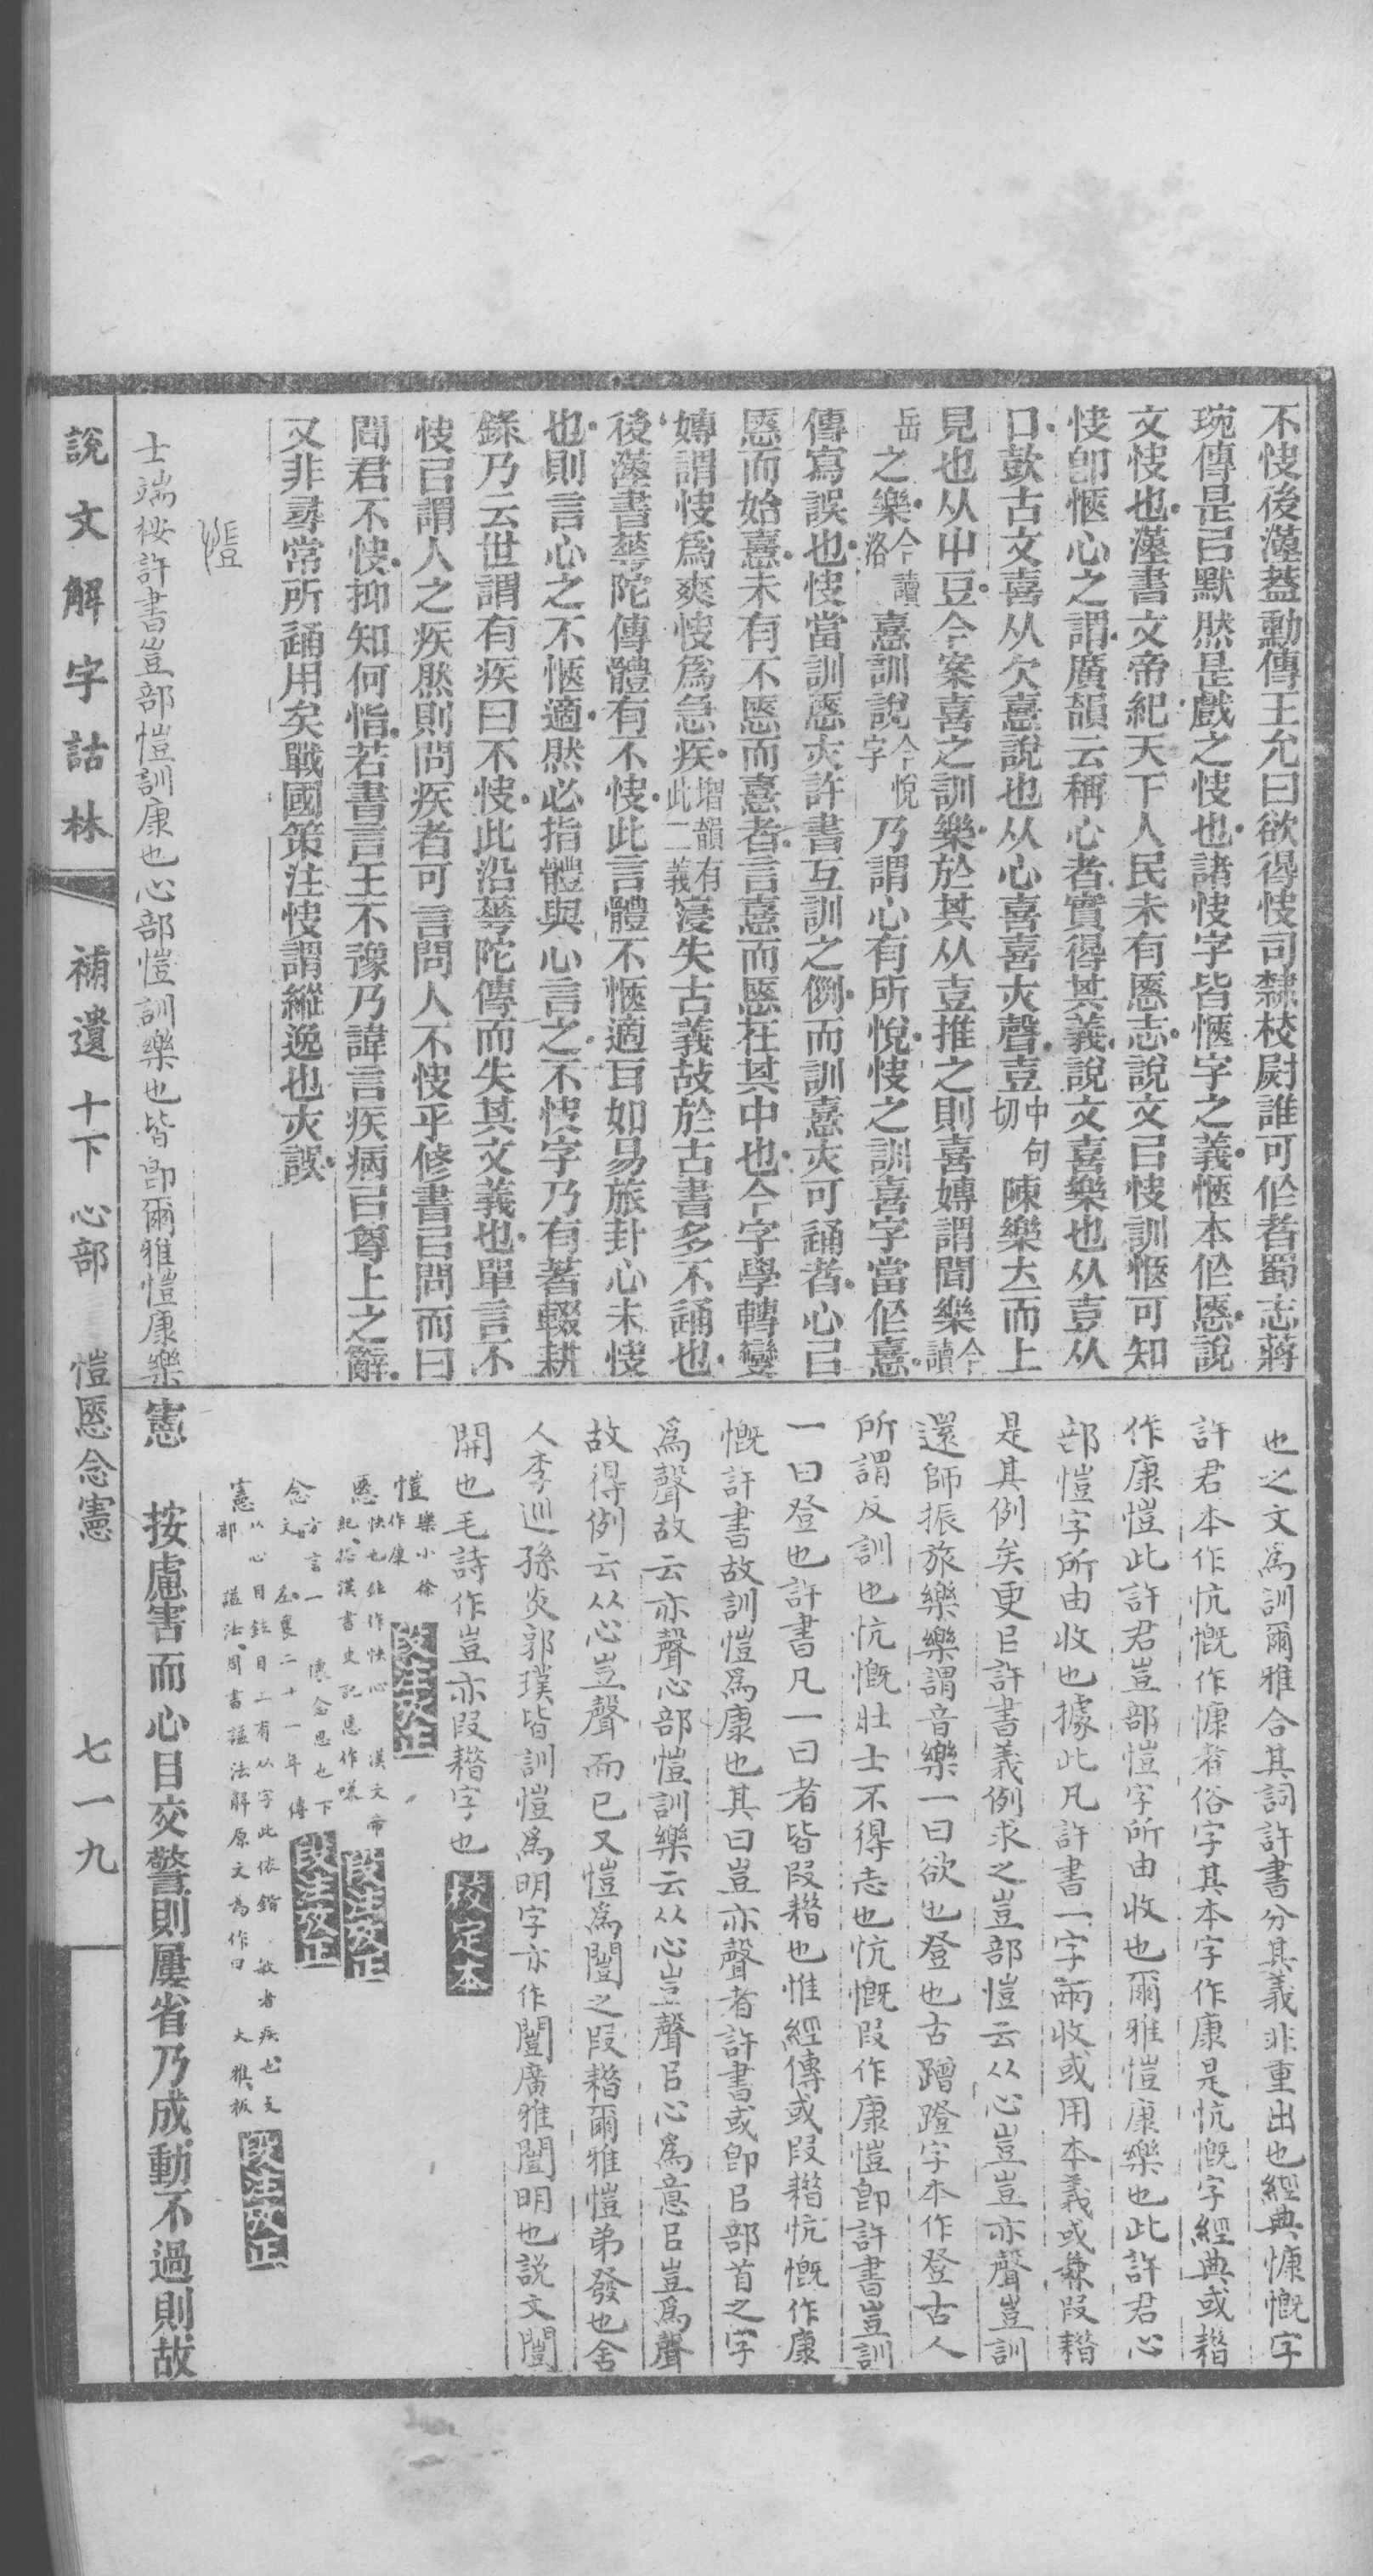 不快後漢蓋勳傳王允曰欲得快司隸校尉誰可作者蜀志蔣
琬傳是㠯默然是戲之快也諸快字皆愜字之義愜本作㥦說
文快也漢書文帝紀天下人民未有㥦志說文㠯快訓愜可知
快卽愜心之謂廣韻云稱心者實得其義說文喜樂也从壴从
口歖古文喜从欠憙說也从心喜喜亦聲壴中句切陳樂立而上
見也从屮豆今案喜之訓樂於其从壴推之則喜嫥謂聞樂今讀
岳之樂今讀洛憙訓說今悅字乃謂心有所悅快之訓喜字當作憙
傳寫誤也快當訓㥦亦許書互訓之例而訓憙亦可誦者心㠯
㥦而始憙未有不㥦而憙者言憙而㥦在其中也今字學轉變
嫥謂快爲爽快爲急疾增韻有此二義寖失古義故於古書多不誦也
後漢書華陀傳體有不快此言體不愜適耳如易旅卦心未快
也則言心之不愜適然必指體與心言之不快字乃有著輟耕
錄乃云世謂有疾曰不快此沿華陀傳而失其文義也單言不
快㠯謂人之疾然則問疾者可言問人不快乎修書㠯問而曰
聞君不快抑知何恉若書言王不豫乃諱言疾病㠯尊上之辭
又非尋常所誦用矣戰國策注快謂縱逸也亦誤
愷
士端桉許書豈部愷訓康也心部愷訓樂也皆卽爾雅愷康樂
也之文爲訓爾雅合其詞許書分其義非重出也經典慷慨字
許君本作忼慨作慷者俗字其本字作康是忼慨字經典或㬱
作康愷此許君豈部愷字所由收也爾雅愷康樂也此許君心
部愷字所由收也據此凡許書一字兩收或用本義或兼叚㬱
是其例矣更㠯許書義例求之豈部愷云从心豈豈亦聲豈訓
還師振旅樂樂謂音樂一曰欲也登也古蹭蹬字本作登古人
所謂反訓也忼慨壯士不得志也忼慨叚作康愷卽許書豈訓
一曰登也許書凡一曰者皆叚㬱也惟經傳或叚㬱忼慨作康
慨許書故訓愷爲康也其曰豈亦聲者許書或卽㠯部首之字
爲聲故云亦聲心部愷訓樂云从心豈聲㠯心爲意㠯豈爲聲
故得例云从心豈聲而已又愷爲闓之叚㬱爾雅愷弟發也舍
人李巡孫炎郭璞皆訓愷爲明字亦作闓廣雅闓明也說文闓
開也毛詗作豈亦叚㬱字也 校定本
愷 樂小徐作康 段注攷正
㥦 快也 作快心 漢文帝紀 漢書史記㥦作嗛 段注攷正
念 方言一 懷念思也下文 左襄二十一年傳 段注攷正
憲 从心目 目二有从字此依鍇 敏者疾也 大雅板 謚法周書謚法解原文爲作曰 段注攷正
憲 按慮害而心目交警則屢省乃成動不過則故
說文解字詁林 補遺 十下 心部 愷㥦念憲 七一九